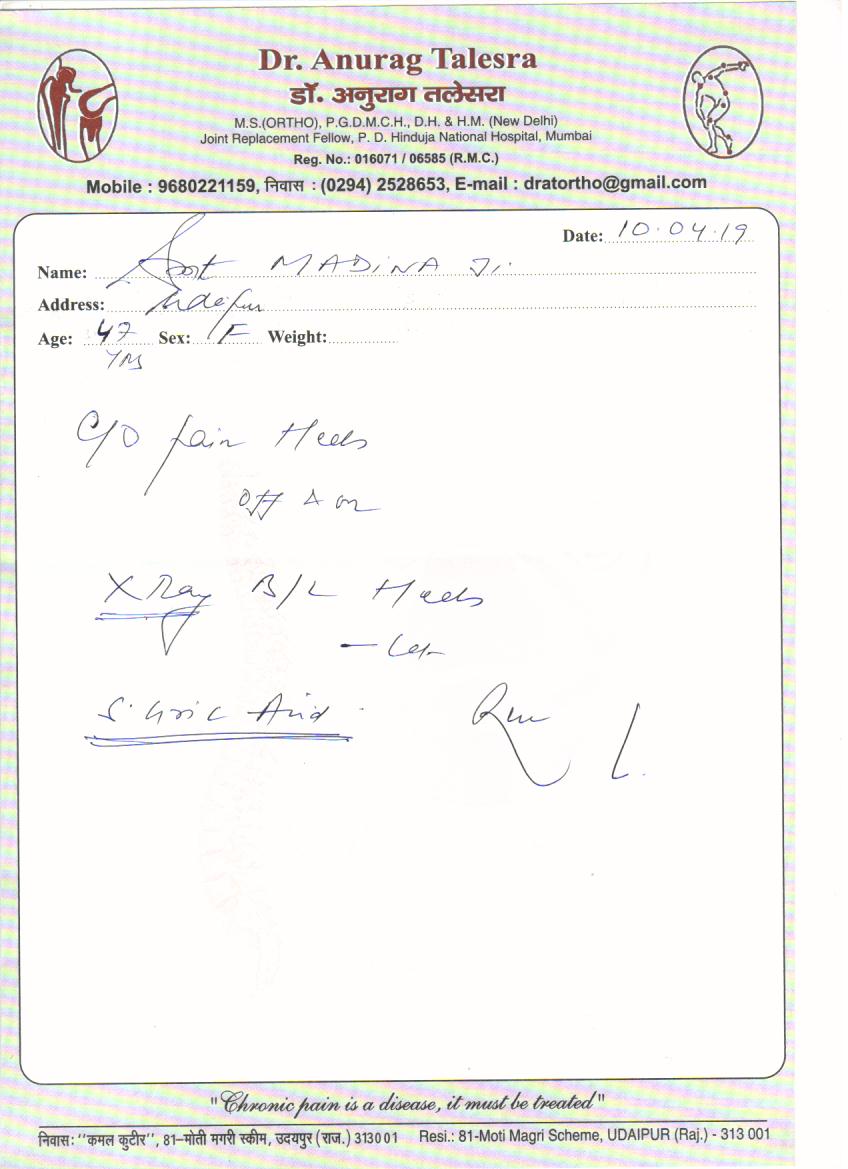 Dr. Anurag Talesra
डॉ. अनुराग तलेसरा
M.S.(ORTHO), P.G.D.M.C.H., D.H. & H.M. (New Delhi)
Joint Replacement Fellow, P. D. Hinduja National Hospital, Mumbai
Reg. No.: 016071 / 06585 (R.M.C.)
Mobile : 9680221159, निवास : (0294) 2528653, E-mail : dratortho@gmail.com
Date: 10.04.19
Name: Smt MADINA Ji
Address: Udaipur
Age: 47 Sex: F Weight:
yrs
C/O pain Heels
Off & on
X Ray B/L Heels
– Lat
S. Uric Acid
"Chronic pain is a disease, it must be treated"
निवास: "कमल कुटीर", 81–मोती मगरी स्कीम, उदयपुर (राज.) 313001 Resi.: 81-Moti Magri Scheme, UDAIPUR (Raj.) - 313 001